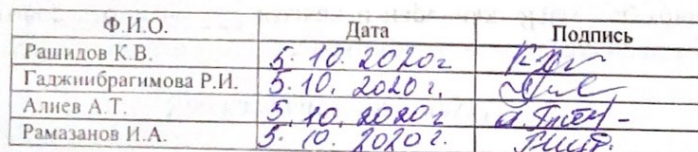 Ф.И.О. Дата Подпись
Рашидов К.В. 5.10.2020г
Гаджиибрагимова Р.И. 5.10.2020г.
Алиев А.Т. 5.10.2020г
Рамазанов И.А. 5.10.2020г.